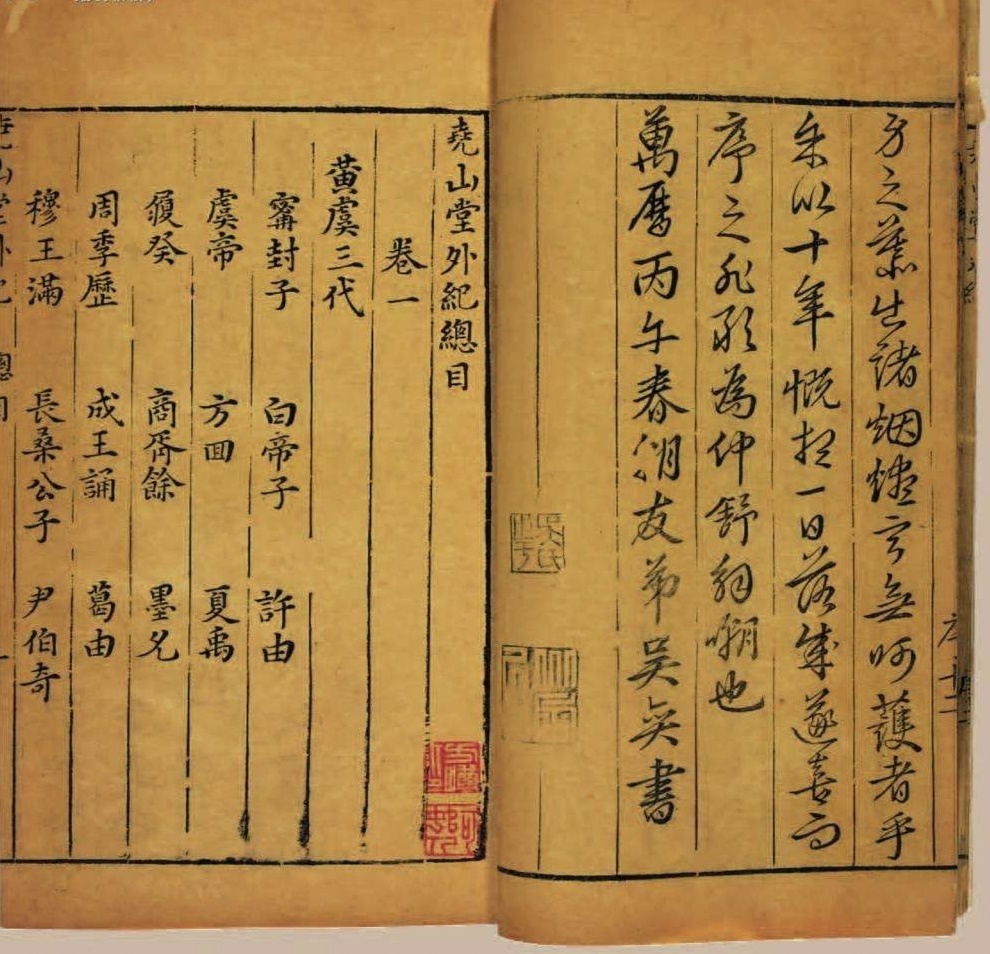 方之藁出諸烟燼無呵護者乎
余以十年慨想一日落成遂喜而
序之非敢為仲舒解嘲也
萬曆丙午春友弟吴奕書
堯山堂外紀總目
卷一
黄虞三代
甯封子 白帝子 許由
虞帝 方囬 夏禹
履癸 商胥餘 墨允
周季歷 成王誦 葛由
穆王滿 長桑公子 尹伯奇
堯山堂外紀 總目 一